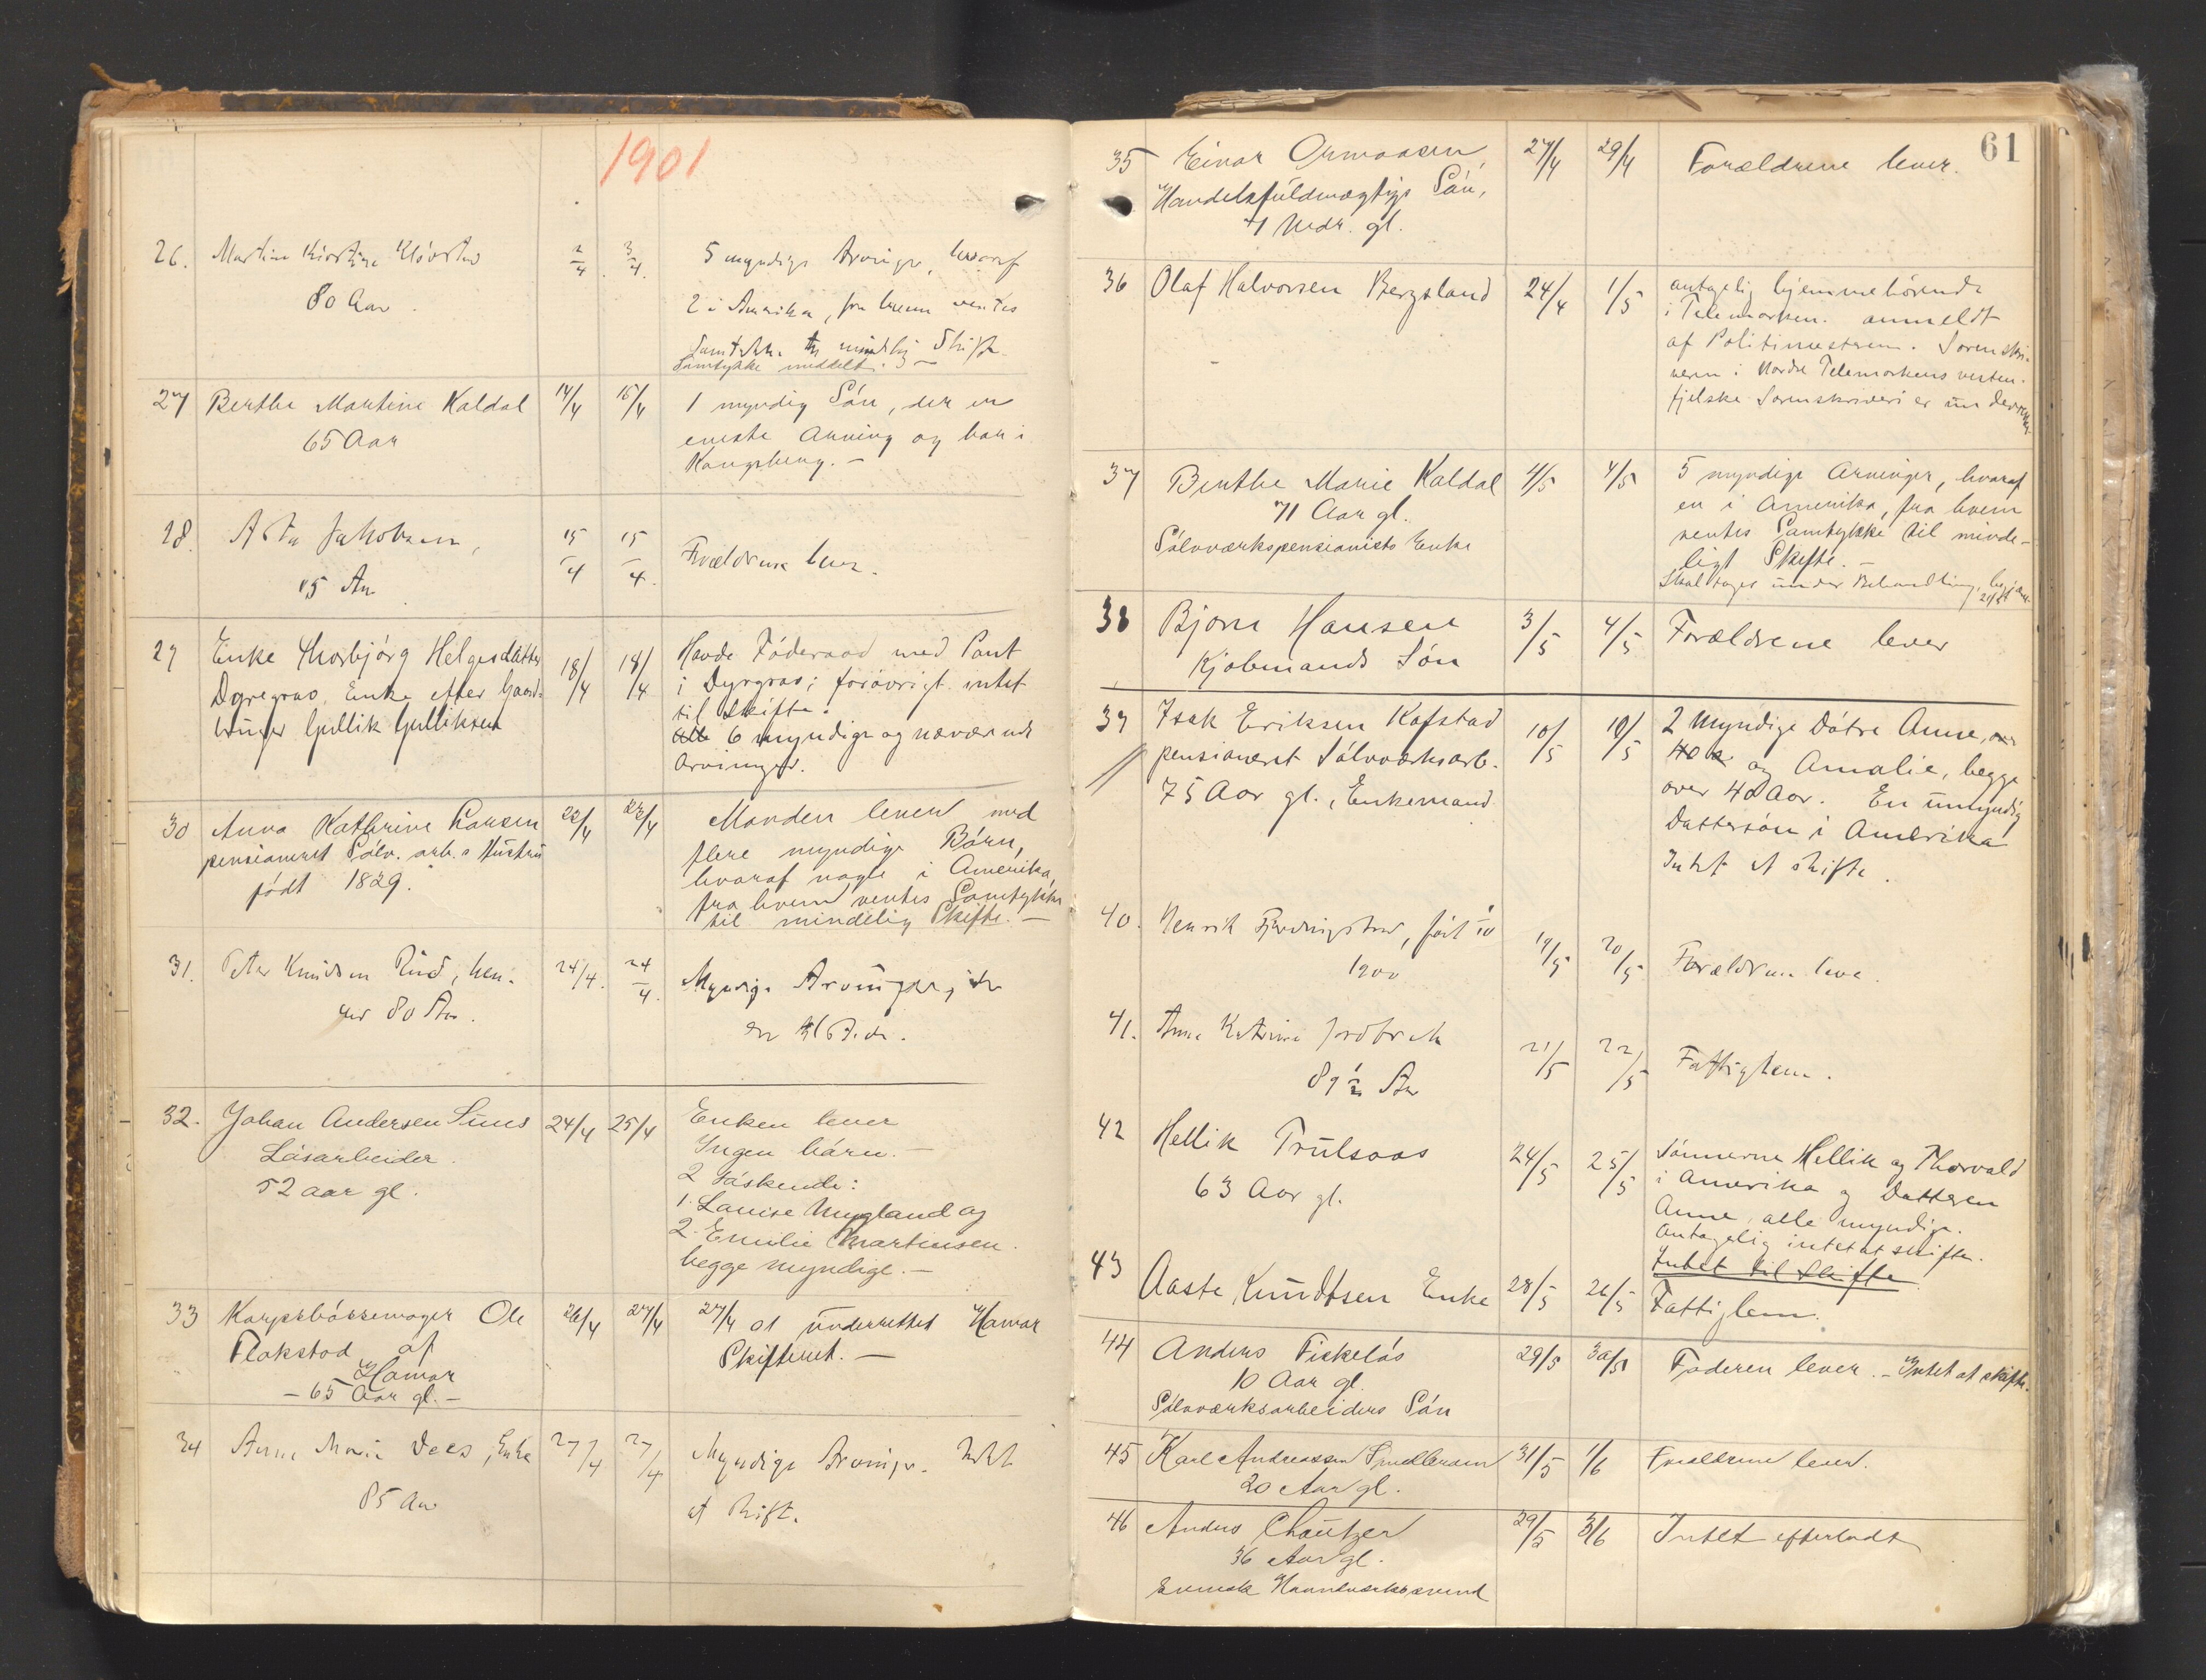 1901
26. Martin Kirstine Kløvstad 2/4 3/4 5 myndige Arvinger, hvoraf
80 Aar 2 i Amerika, fra hvem ventes
Samtykke til mindelig Skifte.
Samtykke meddelt.
27 Berthe Martine Kaldal 14/4 15/4 1 myndig Sön, der er
65 Aar eneste Arving og bor i
Kongsberg. —
28. Asta Jakobsen, 15/4 15/4. Forældrene lever.
15 Aar
29 Enke Thorbjørg Helgesdatter 18/4 18/4 Havde Föderaad med Pant
Dyregras, Enke efter Gaard- i Dyrgras; forövrigt intet
bruger Gullik Gulliksen til Skifte.
Alle 6 myndige og nærværende
Arvinger.
30 Anna Kathrine Larsen 22/4 23/4 Manden lever med
pensioneret Sölv. arb.s Hustru flere myndige Börn,
födt 1829. hvoraf nogle i Amerika,
fra hvem ventes Samtykke
til mindelig Skifte. —
31. Peter Knudsen Rud, hen- 24/4. 24/4. Myndige Arvinger,
ved 80 Aar.
32. Johan Andersen 24/4 25/4 Enken lever
Lösarbeider. Ingen börn. —
52 aar gl. 2 söskende:
1. Louise Mygland og
2. Emilie Martinsen.
begge myndige. —
33 Korpsbössemager Ole 26/4 27/4 27/4 01 underrettet Hamar
Flakstad af Skifteret. —
Hamar
— 65 Aar gl. —
34 Anne Marie Dees, Enke 27/4 27/4 Myndige Arvinger. Intet
85 Aar at skifte.
61
35 Einar Ormaasen, 27/4 29/4 Forældrene lever.
Handelsfuldmægtigs Sön,
71 Mdr. gl.
36 Olaf Halvorsen Bergsland 24/4 1/5 antagelig hjemmehörende
i Telemarken. anmeldt
af Politimesteren. Sorenskri-
veren i Nordre Telemarkens vesten-
fjelske Sorenskriveri er underrettet
37 Berthe Marie Kaldal 4/5 4/5 5 myndige Arvinger, hvoraf
71 Aar gl. en i Amerika, fra hvem
Sölvværkspensionists Enke ventes Samtykke til minde-
ligt Skifte. —
Skal tages under Behandling,
38 Bjorn Hansen 3/5 4/5 Forældrene lever
Kjöbmands Sön
39 Isak Eriksen Kofstad 10/5 10/5 2 Myndige Dötre Anne,
pensioneret Sölvværksarb. 40 og Amalie, begge
75 Aar gl., Enkemand over 40 Aar. En umyndig
Dattersön i Amerika
Intet at skifte.
40. Henrik Fjerdingstad, født
1900 19/5 20/5. Forældrene leve.
41. Anne Katrine Jordbrek 21/5 22/5 Fattiglem.
89 1/2 Aar
42 Hellik Trulsaas 24/5 25/5 Sönnerne Hellik og Thorvald
63 Aar gl. i Amerika og Datteren
Anne, alle myndige.
Antagelig intet at skifte.
Intet til Skifte
43 Aaste Knudtsen Enke 28/5 28/5 Fattiglem.
44 Anders Fiskelös 29/5 30/5 Faderen lever. – Intet at skifte.
10 Aar gl.
Sölvværksarbeiders Sön
45 Karl Andreassen 31/5 1/6 Forældrene lever.
20 Aar gl.
46 Anders 29/5 3/6 Intet efterladt
36 Aar gl.
Svensk